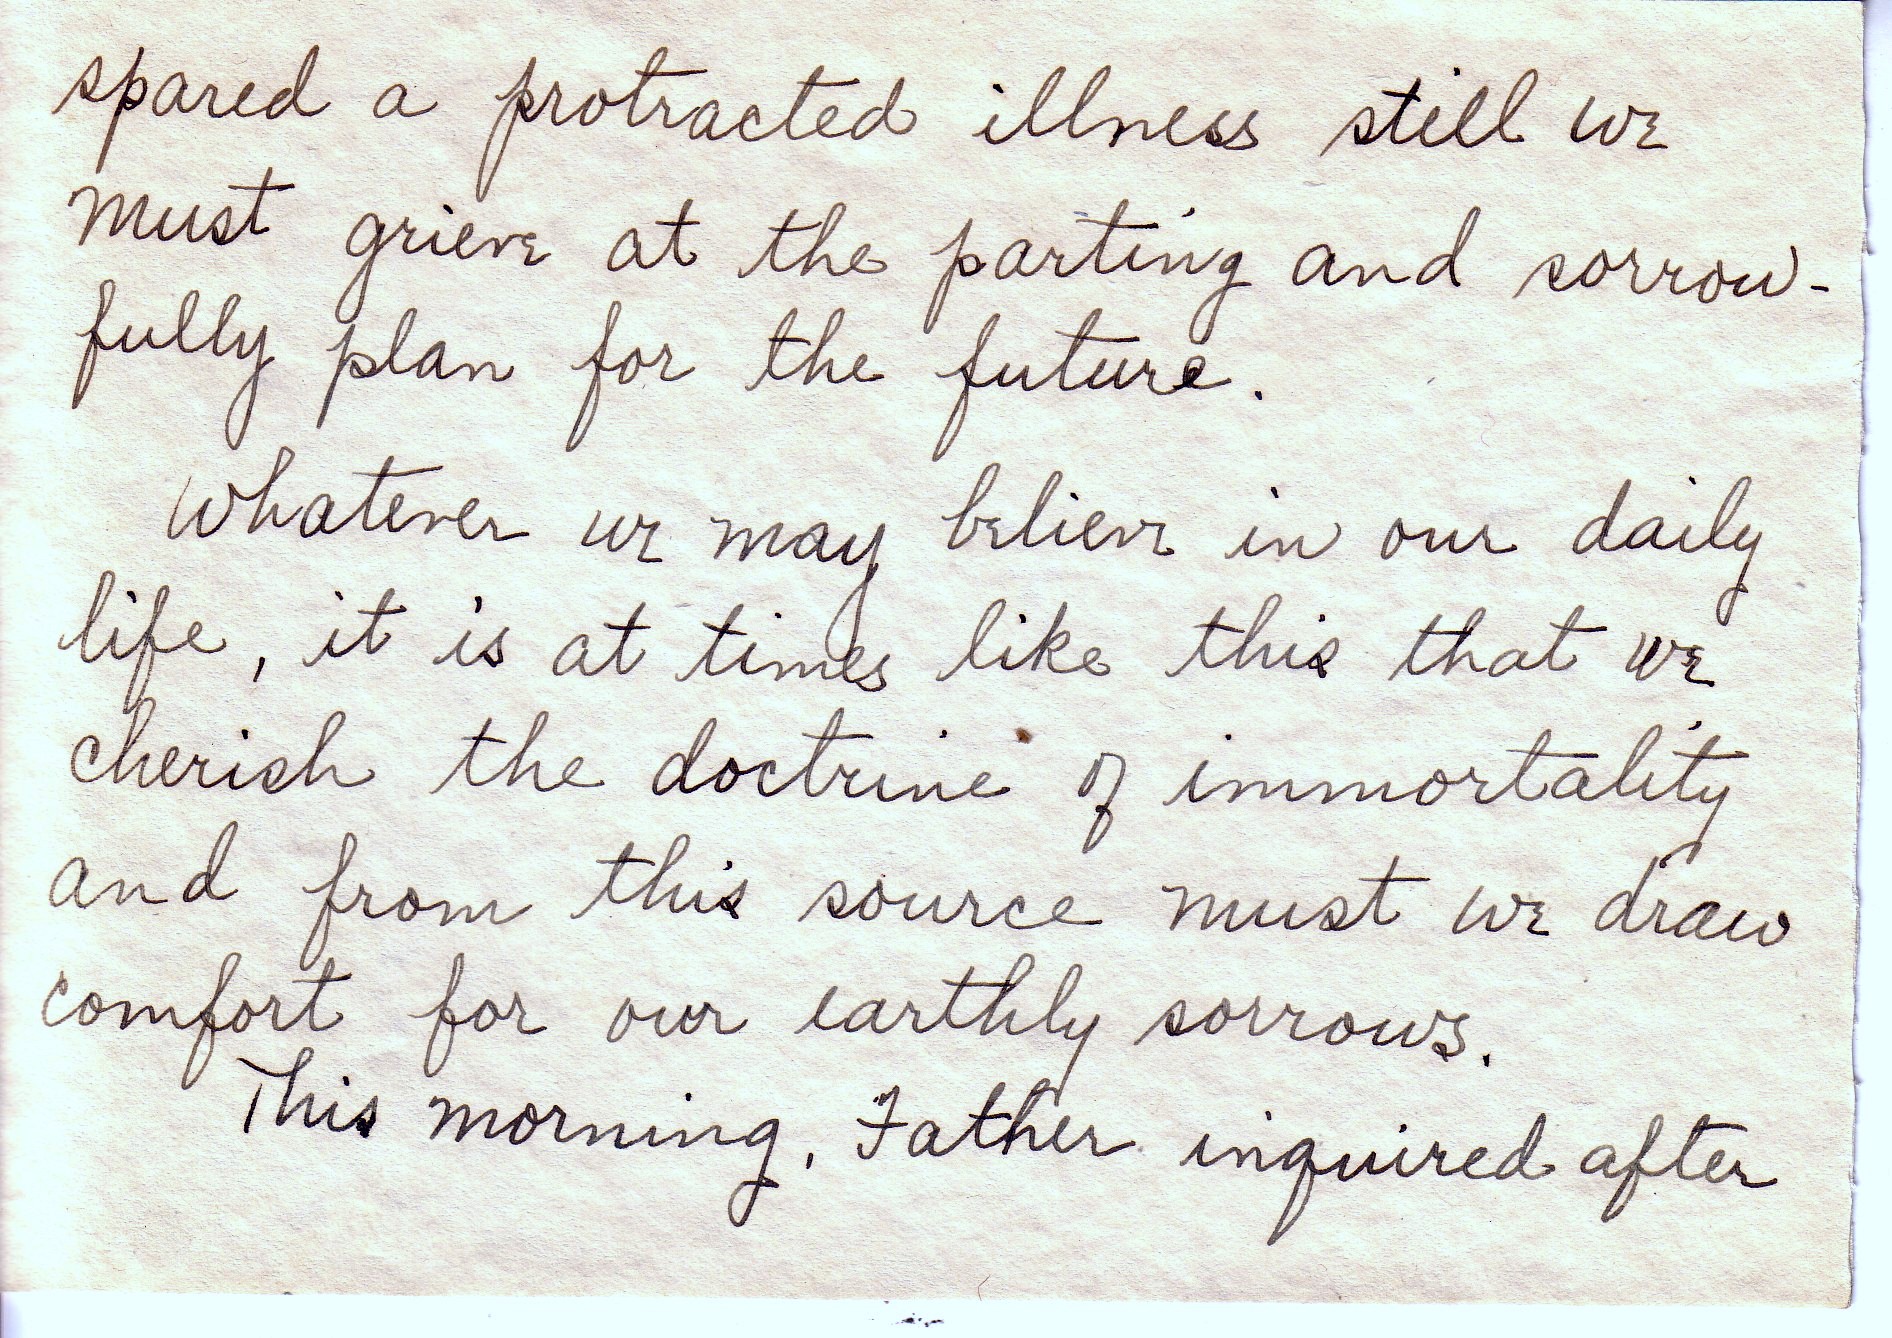 spared a protracted illness still we
must grieve at the parting and sorrow-
fully plan for the future.
Whatever we may believe in our daily
life, it is at times like this that we
cherish the doctrine of immortality
and from this source must we draw
comfort for our earthly sorrows.
This morning, Father inquired after